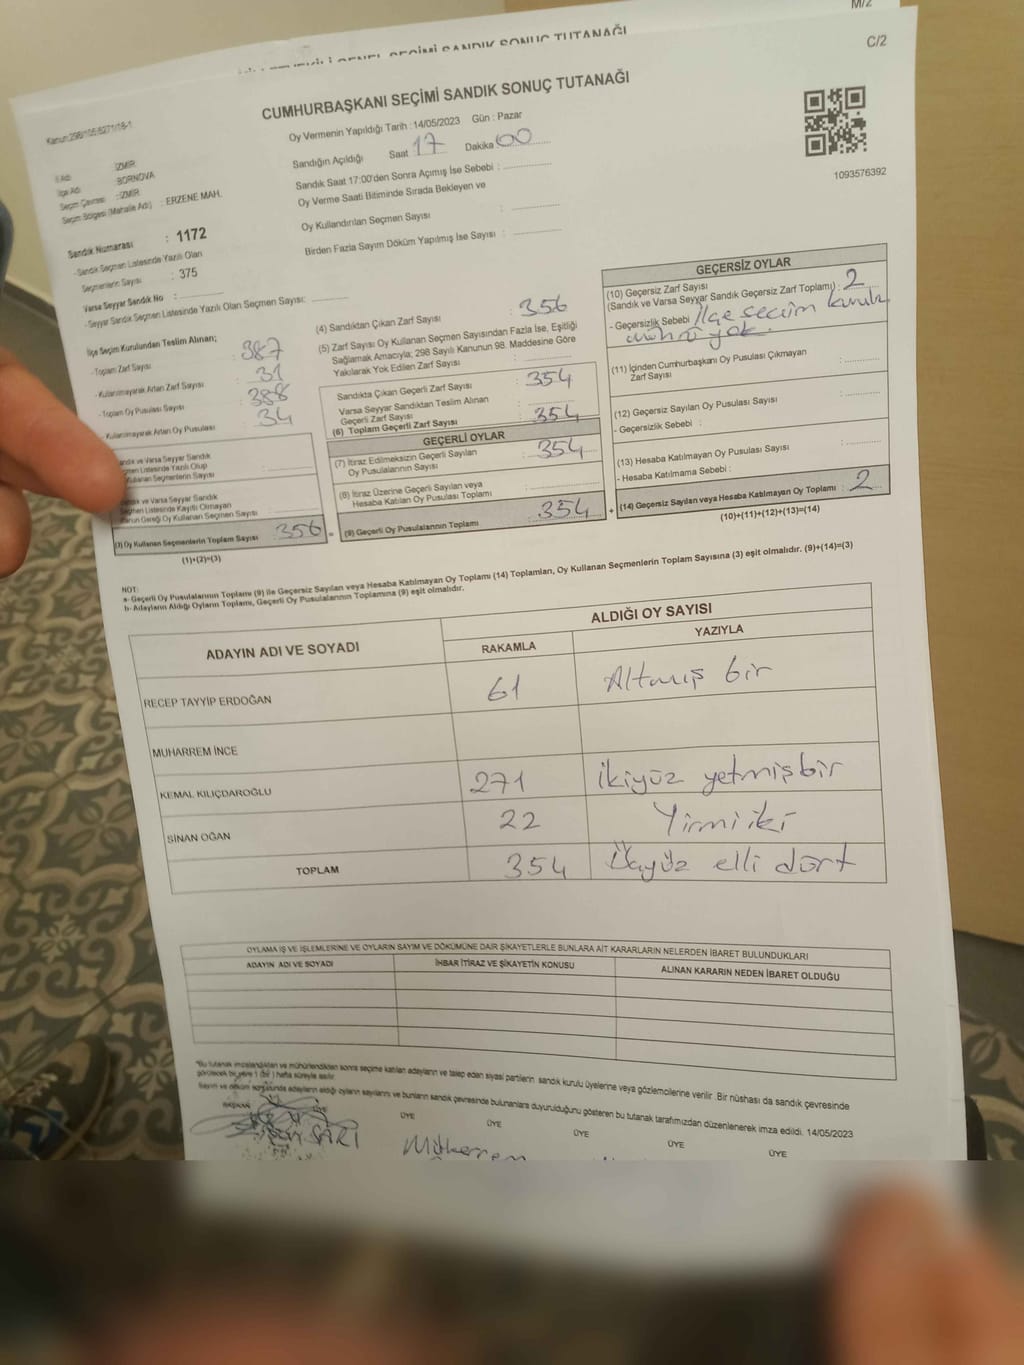 M/2
SEÇİMİ SANDIK SONUÇ TUTANAĞI
C/2
CUMHURBAŞKANI SEÇİMİ SANDIK SONUÇ TUTANAĞI
Kanun:298/105;6271/18-1
Oy Vermenin Yapıldığı Tarih : 14/05/2023 Gün : Pazar
Sandığın Açıldığı Saat 17 Dakika 00
Sandık Saat 17:00'den Sonra Açımış İse Sebebi :
Oy Verme Saati Bitiminde Sırada Bekleyen ve
Oy Kullandırılan Seçmen Sayısı :
Birden Fazla Sayım Döküm Yapılmış İse Sayısı :
1093576392
İl Adı : İZMİR
İlçe Adı : BORNOVA
Seçim Çevresi : İZMİR
Seçim Bölgesi (Mahalle Adı) : ERZENE MAH.
Sandık Numarası : 1172
- Sandık Seçmen Listesinde Yazılı Olan
Seçmenlerin Sayısı : 375
Varsa Seyyar Sandık No :
- Seyyar Sandık Seçmen Listesinde Yazılı Olan Seçmen Sayısı:
İlçe Seçim Kurulundan Teslim Alınan;
- Toplam Zarf Sayısı : 387
- Kullanılmayarak Artan Zarf Sayısı : 31
- Toplam Oy Pusulası Sayısı : 388
- Kullanılmayarak Artan Oy Pusulası : 34
Sandık ve Varsa Seyyar Sandık
Seçmen Listesinde Yazılı Olup
Kullanan Seçmenlerin Sayısı :
Sandık ve Varsa Seyyar Sandık
Seçmen Listesinde Kayıtlı Olmayan
Kanun Gereği Oy Kullanan Seçmen Sayısı :
(3) Oy Kullanan Seçmenlerin Toplam Sayısı 356
(1)+(2)=(3)
(4) Sandıktan Çıkan Zarf Sayısı : 356
(5) Zarf Sayısı Oy Kullanan Seçmen Sayısından Fazla İse, Eşitliği
Sağlamak Amacıyla; 298 Sayılı Kanunun 98. Maddesine Göre
Yakılarak Yok Edilen Zarf Sayısı :
Sandıkta Çıkan Geçerli Zarf Sayısı : 354
Varsa Seyyar Sandıktan Teslim Alınan
Geçerli Zarf Sayısı :
(6) Toplam Geçerli Zarf Sayısı : 354
GEÇERLİ OYLAR
(7) İtiraz Edilmeksizin Geçerli Sayılan
Oy Pusulalarının Sayısı : 354
(8) İtiraz Üzerine Geçerli Sayılan veya
Hesaba Katılan Oy Pusulası Toplamı :
= (9) Geçerli Oy Pusulalarının Toplamı : 354
GEÇERSİZ OYLAR
(10) Geçersiz Zarf Sayısı
(Sandık ve Varsa Seyyar Sandık Geçersiz Zarf Toplamı) : 2
- Geçersizlik Sebebi : İlçe seçim kurulu
mührü yok.
(11) İçinden Cumhurbaşkanı Oy Pusulası Çıkmayan
Zarf Sayısı :
(12) Geçersiz Sayılan Oy Pusulası Sayısı :
- Geçersizlik Sebebi :
(13) Hesaba Katılmayan Oy Pusulası Sayısı :
- Hesaba Katılmama Sebebi :
+ (14) Geçersiz Sayılan veya Hesaba Katılmayan Oy Toplamı : 2
(10)+(11)+(12)+(13)=(14)
NOT:
a- Geçerli Oy Pusulalarının Toplamı (9) ile Geçersiz Sayılan veya Hesaba Katılmayan Oy Toplamı (14) Toplamları, Oy Kullanan Seçmenlerin Toplam Sayısına (3) eşit olmalıdır. (9)+(14)=(3)
b- Adayların Aldığı Oyların Toplamı, Geçerli Oy Pusulalarının Toplamına (9) eşit olmalıdır.
ADAYIN ADI VE SOYADI
ALDIĞI OY SAYISI
RAKAMLA YAZIYLA
RECEP TAYYİP ERDOĞAN 61 Altmış bir
MUHARREM İNCE
KEMAL KILIÇDAROĞLU 271 ikiyüz yetmişbir
SİNAN OĞAN 22 Yirmi iki
TOPLAM 354 Üçyüz elli dört
OYLAMA İŞ VE İŞLEMLERİNE VE OYLARIN SAYIM VE DÖKÜMÜNE DAİR ŞİKAYETLERLE BUNLARA AİT KARARLARIN NELERDEN İBARET BULUNDUKLARI
ADAYIN ADI VE SOYADI İHBAR İTİRAZ VE ŞİKAYETİN KONUSU ALINAN KARARIN NEDEN İBARET OLDUĞU
"Bu tutanak imzalandıktan ve mühürlendikten sonra seçime katılan adayların ve talep eden siyasi partilerin sandık kurulu üyelerine veya gözlemcilerine verilir .Bir nüshası da sandık çevresinde
görülecek bir yere 1 (bir) hafta süreyle asılır.
Sayım ve döküm sonucunda adayların aldığı oyların sayılarını ve bunların sandık çevresinde bulunanlara duyurulduğunu gösteren bu tutanak tarafımızdan düzenlenerek imza edildi. 14/05/2023
BAŞKAN ÜYE ÜYE ÜYE ÜYE ÜYE ÜYE
SARI